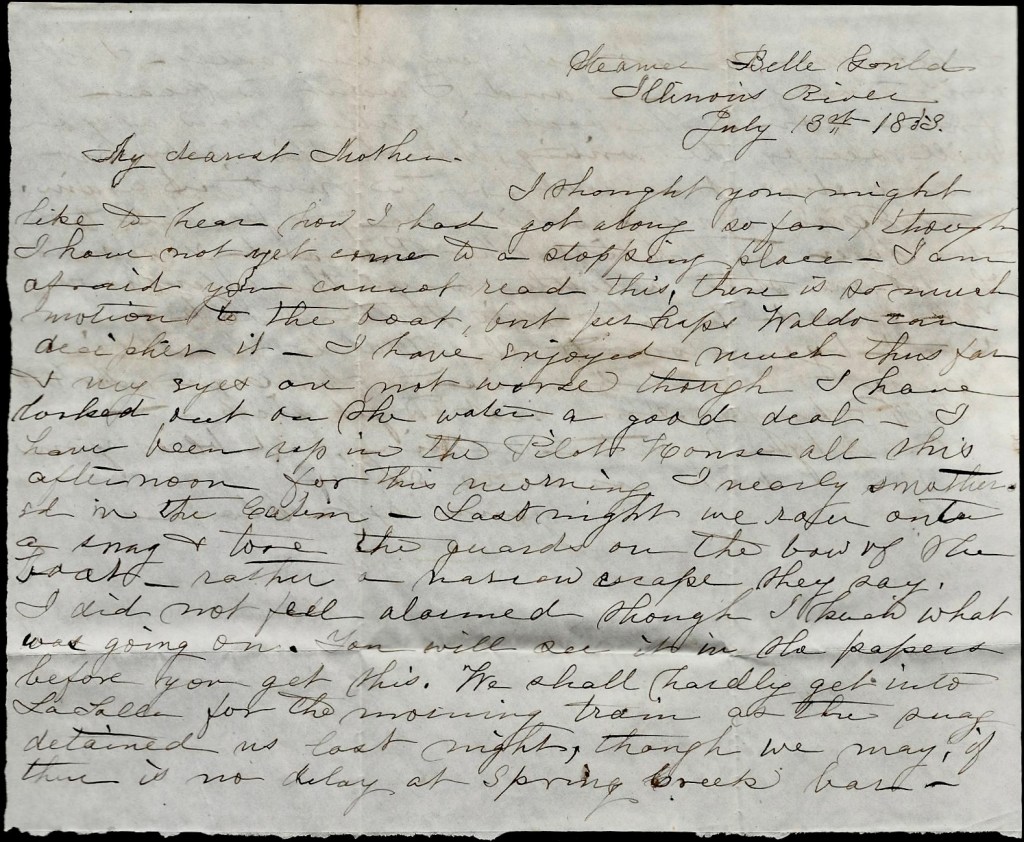 Steamer Belle Gould
Illinois River
July 13th 1853.
My dearest Mother.
I thought you might
like to hear how I had got along so far, though
I have not yet come to a stopping place – I am
afraid you cannot read this, there is so much
motion to the boat, but perhaps Waldo can
decipher it – I have enjoyed much thus far
& my eyes are not worse though I have
looked out on the water a good deal – I
have been up in the Pilot House all this
afternoon for this morning I nearly smother-
ed in the Cabin – Last night we ran onto
a snag & tore the guards on the bow of the
boat – rather a narrow escape they say.
I did not feel alarmed though I knew what
was going on. You will see it in the papers
before you get this. We shall hardly get into
LaSalle for the morning train as the snag
detained us last night, though we may, if
there is no delay at Spring Creek bar –